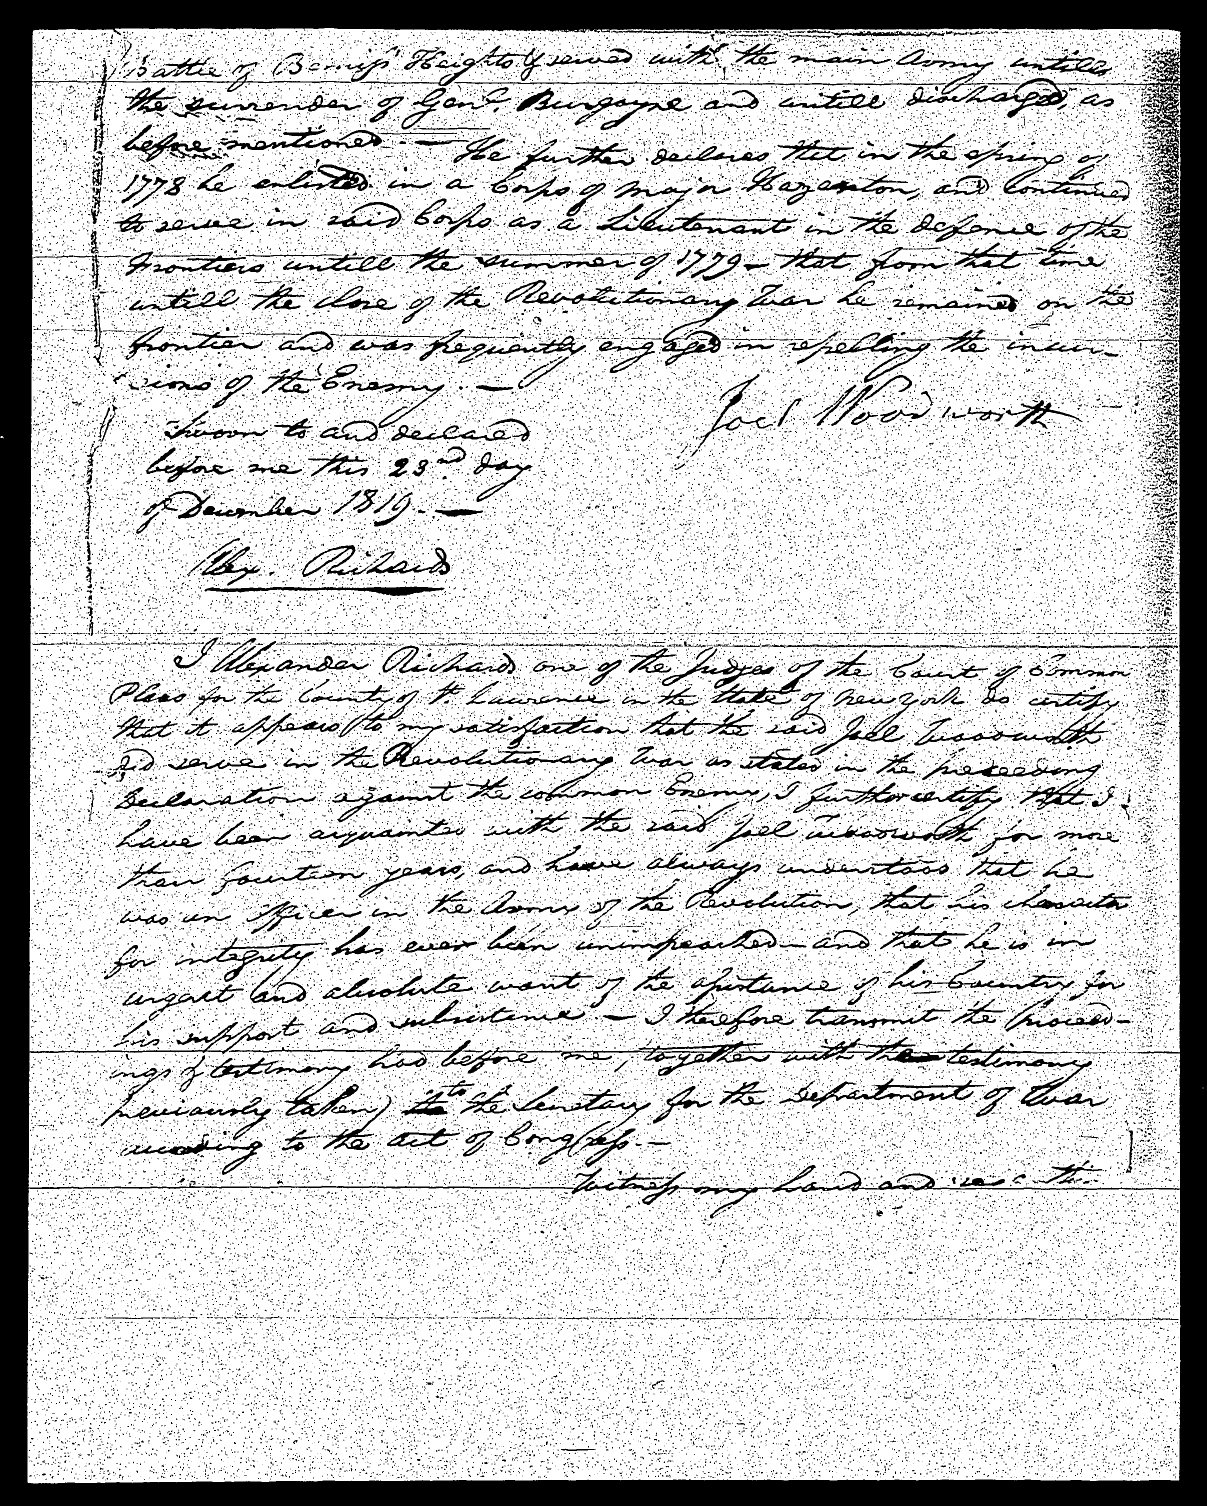 Battle of Bemiss Heights & served with the main Army untill
the surrender of Genl. Burgoyne and untill discharged, as
before mentioned. — He further declares that in the spring of
1778 he enlisted in a Corps of Major Hazenton, and continued
to serve in said Corps as a Lieutenant in the defence of the
Frontiers untill the summer of 1779 — that from that time
untill the close of the Revolutionary War he remained on the
frontier and was frequently engaged in repelling the incur-
sions of the Enemy. —
Joel Woodworth
Sworn to and declared
before me this 23rd day
of December 1819. —
Alex. Richards
I Alexander Richards one of the Judges of the Court of Common
Pleas for the County of St. Lawrence in the State of New York do certify
that it appears to my satisfaction that the said Joel Woodworth
did serve in the Revolutionary War as stated in the preceeding
Declaration against the common Enemy, I further certify that I
have been acquainted with the said Joel Woodworth for more
than fourteen years, and have always understood that he
was an officer in the Army of the Revolution, that his character
for integrity has ever been unimpeached — and that he is in
urgent and absolute want of the assistance of his Country for
his support and subsistence — I therefore transmit the (proceed-
ings & testimony had before me, together with the testimony
previously taken) to the Secretary for the Department of War
according to the act of Congress. —
Witness my hand and seal this